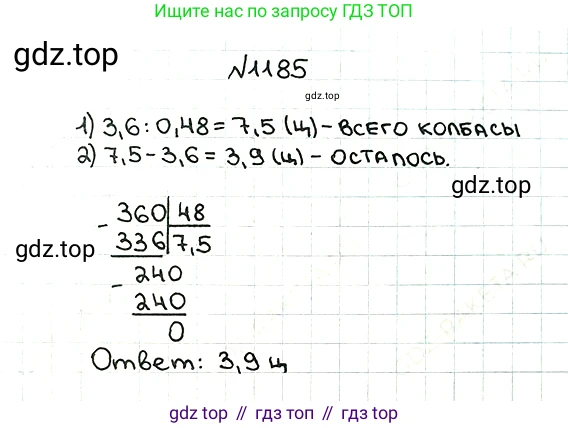 Ищите нас по запросу ГДЗ ТОП
gdz.top
№1185
gdz.top
1) 3,6 : 0,48 = 7,5 (ц) - всего колбасы
2) 7,5 - 3,6 = 3,9 (ц) - осталось.
gdz.top
- 360 48
336 7,5
gdz.top
- 240
240
0
Ответ: 3,9 ц
gdz.top // гдз топ // gdz.top